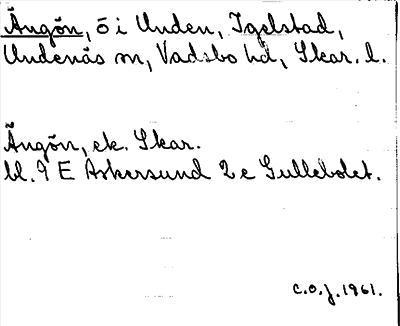 Ängön, ö i Unden, Igelstad,
Undenäs sn, Vadsbo hd, Skar. l.
Ängön, ek. Skar.
bl. 9 E Askersund 2 e Gullebolet.
C.O.J. 1961.